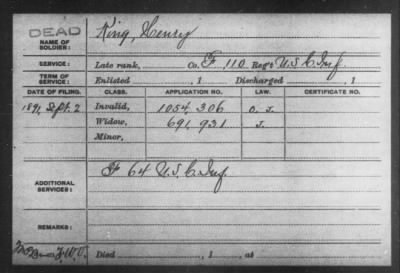 DEAD King, Henry
NAME OF SOLDIER:
SERVICE: Late rank, Co. F 110 Reg't U.S.C. Inf
TERM OF SERVICE: Enlisted , 1 Discharged , 1
DATE OF FILING. CLASS. APPLICATION NO. LAW. CERTIFICATE NO.
1891, Sept. 2 Invalid, 1054,306
Widow, 691,931 J.
Minor,
ADDITIONAL SERVICES: F 64 U.S.C. Inf.
REMARKS:
Died , 1 , at